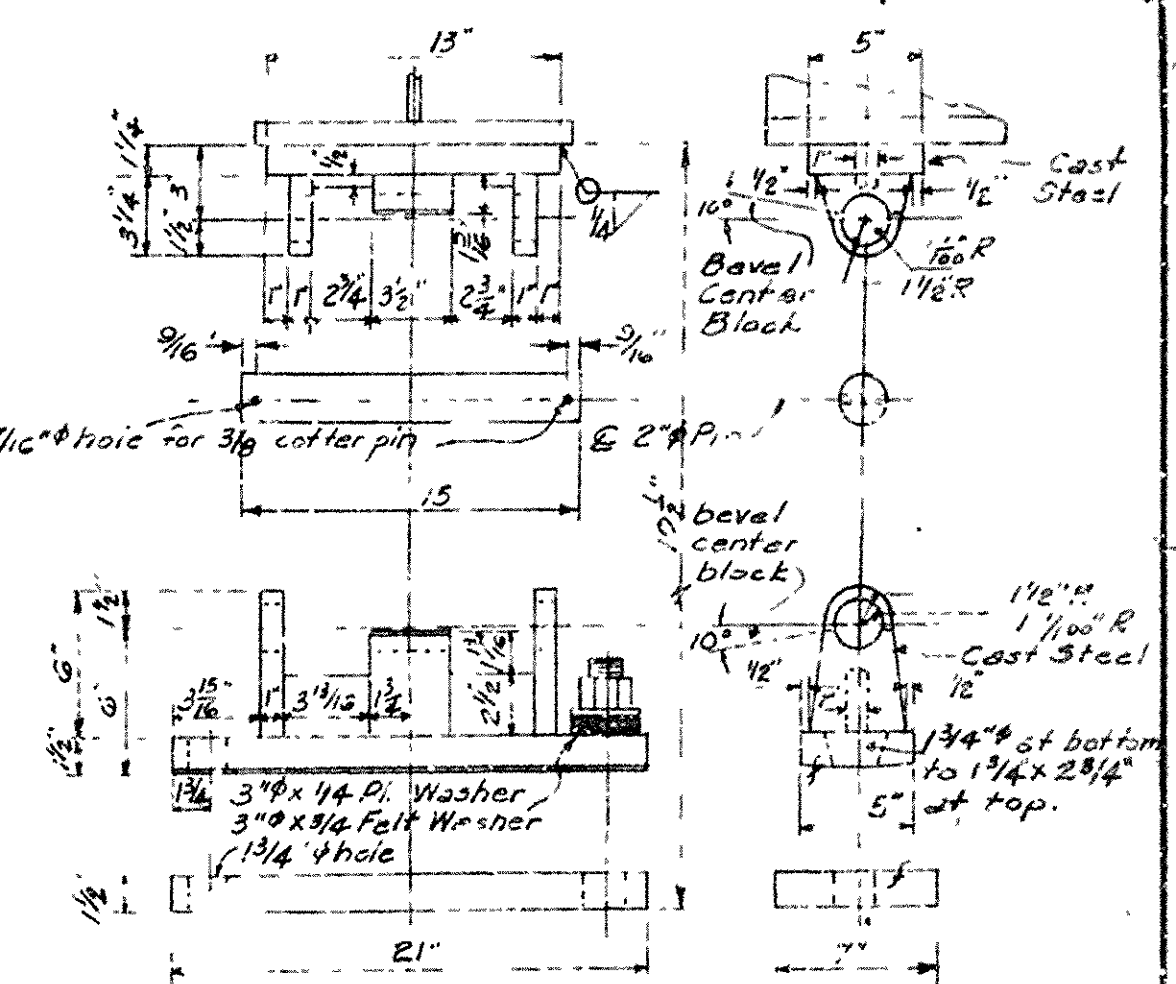 13"
5"
1¼"
3¼"
3
1½"
½
¼
1"
1"
2¾"
3½"
2¾"
1"
1"
1"
½"
½"
Cast
Steel
Bevel
Center
Block
1/100" R
1½" R
9/16"
9/16"
/16"ϕ hole for 3/8 cotter pin
℄ 2"ϕ Pin
15
bevel
center
block
10°
1½" R
1 1/100" R
Cast Steel
½"
½"
1"
6"
6"
1½
1½"
3 15/16"
1"
3 13/16
1¾
2½"
1¾
3"ϕ x 1/4 Pl. Washer
3"ϕ x 3/4 Felt Washer
1¾"ϕ hole
1¾"ϕ at bottom
to 1¾ x 2¾"
at top.
5"
1½
21"
7"